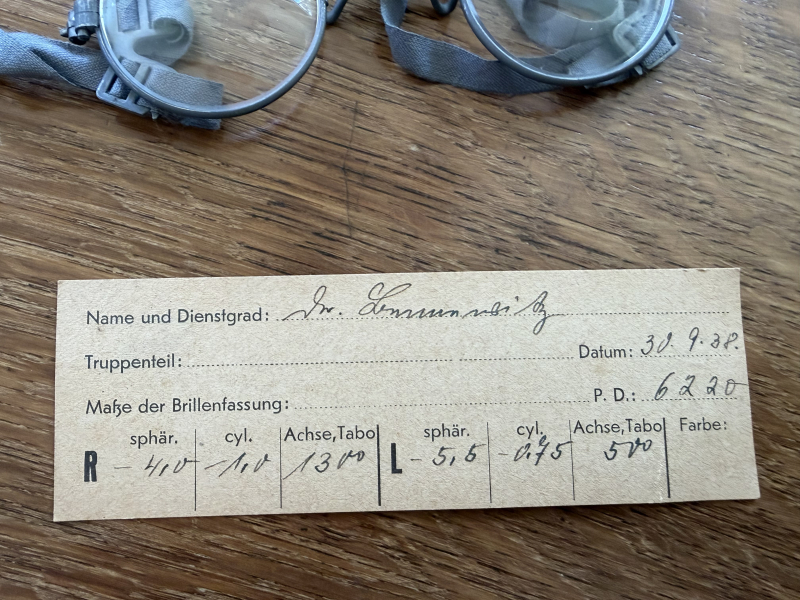 Name und Dienstgrad: Dr.
Truppenteil: Datum: 30. 9. 38.
Maße der Brillenfassung: P. D.:
sphär. cyl. Achse, Tabo sphär. cyl. Achse, Tabo Farbe:
R – 4,0 – 1,0 130° L – 5,5 – 0,75 50°